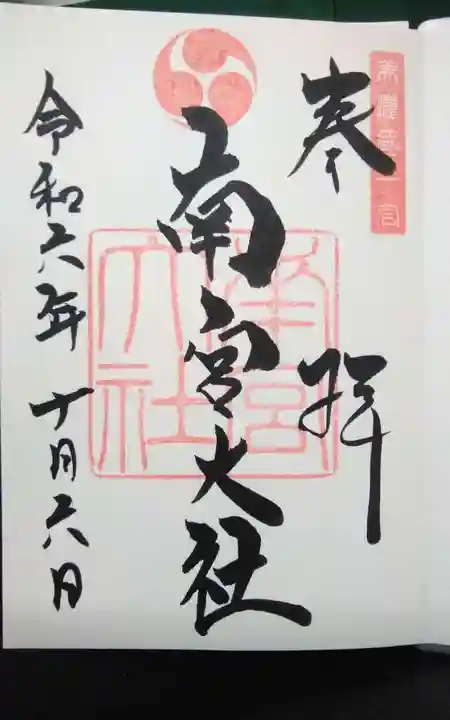 美濃國一宮
奉拝
南宮大社
南宮大社
令和六年十月六日